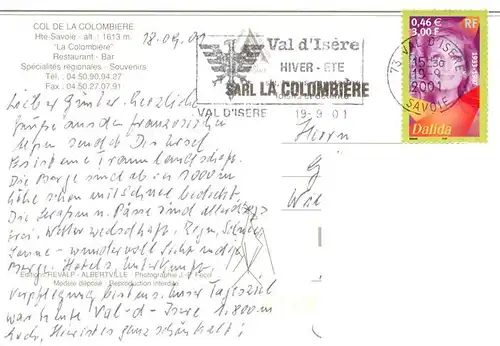 COL DE LA COLOMBIERE
Hte-Savoie - alt : 1613 m.
"La Colombière"
Restaurant - Bar
Spécialités régionales - Souvenirs
Tél. : 04.50.90.94.27
Fax : 04.50.27.07.91
18.09.01
Val d'Isère
HIVER - ETE
SARL LA COLOMBIÈRE
VAL D'ISERE 19-9 01
0,46 €
3,00 F
RF
Dalida
73 VAL D'ISERE
19-9
2001
SAVOIE
Lieber Günter. Herzliche
Grüße aus den französischen
Alpen sendet Dir Ursel
Traumlandschaft.
Die Berge sind ab ca 2000 m
Höhe schon mit Schnee bedeckt.
Die Straßen u. Pässe sind allerdings
frei. Wetter wechselhaft, Regen, Schnee,
Sonne - wundervoll Sicht
Berge. Hotels, Unterkunft,
Verpflegung bestens. Unser Tagesziel
war heute Val-d-Isere 1.800 m
hoch. Hier ist es ganz schön kalt!
Herrn
Editions REVALP - ALBERTVILLE Photographie J.-P.
Modèle déposé Reproduction interdite